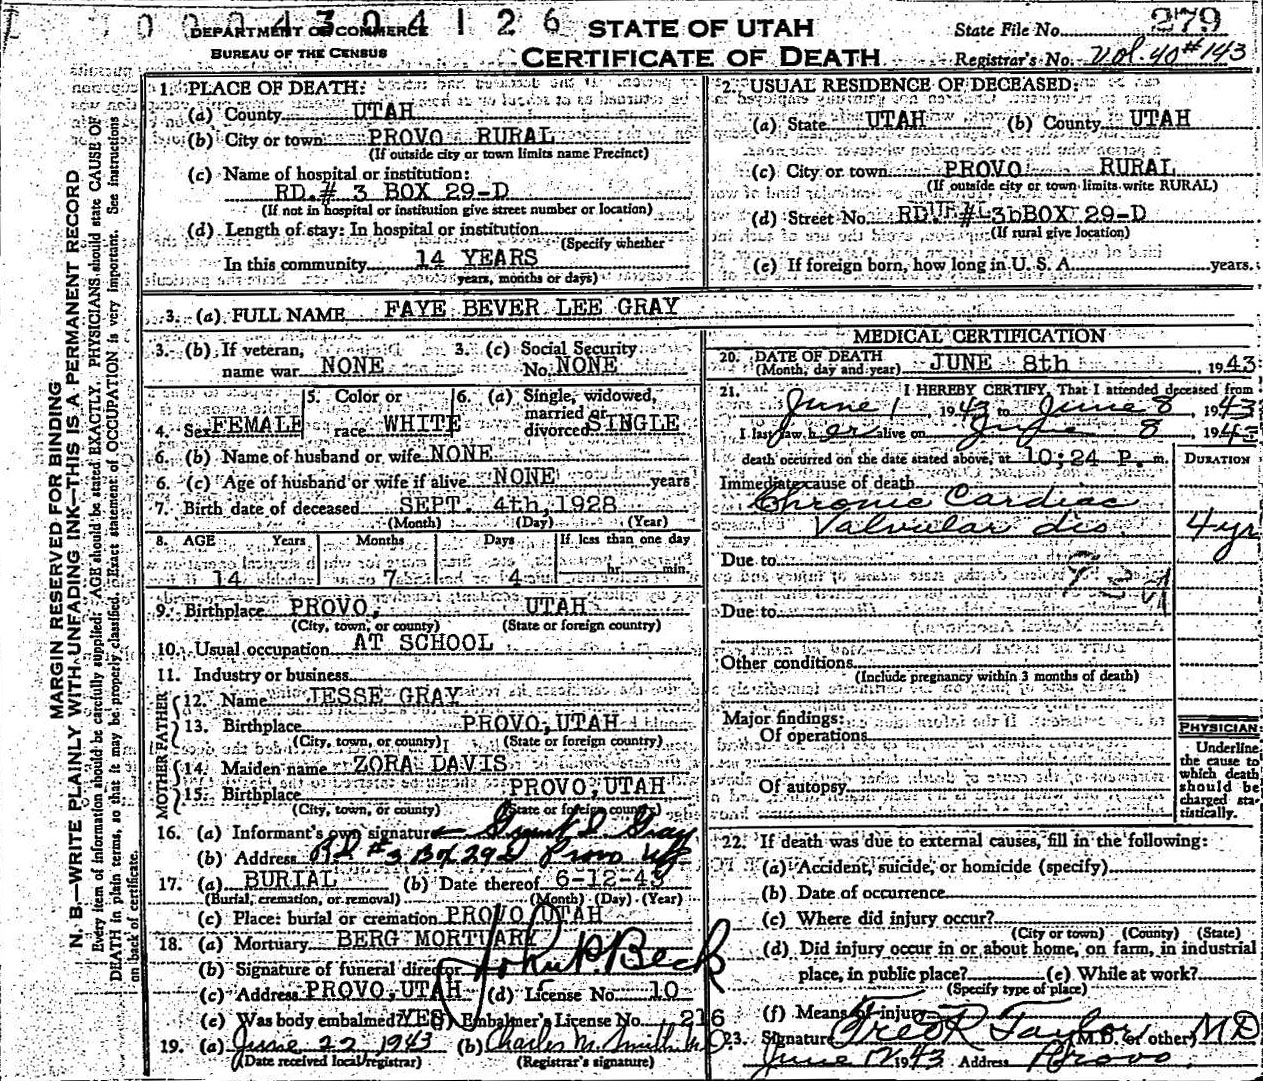 0 0 0 4 3 0 4 1 2 6
DEPARTMENT OF COMMERCE
BUREAU OF THE CENSUS
STATE OF UTAH
CERTIFICATE OF DEATH
State File No. 279
Registrar's No. Vol. 40 #143
MARGIN RESERVED FOR BINDING
N. B.—WRITE PLAINLY WITH UNFADING INK—THIS IS A PERMANENT RECORD
Every item of information should be carefully supplied. AGE should be stated EXACTLY. PHYSICIANS should state CAUSE OF
DEATH in plain terms, so that it may be properly classified. Exact statement of OCCUPATION is very important. See instructions
on back of certificate.
1. PLACE OF DEATH:
(a) County UTAH
(b) City or town PROVO RURAL
(If outside city or town limits name Precinct)
(c) Name of hospital or institution:
RD. # 3 BOX 29-D
(If not in hospital or institution give street number or location)
(d) Length of stay: In hospital or institution
(Specify whether
In this community 14 YEARS
years, months or days)
2. USUAL RESIDENCE OF DECEASED:
(a) State UTAH (b) County UTAH
(c) City or town PROVO RURAL
(If outside city or town limits write RURAL)
(d) Street No. RD # 3 BOX 29-D
(If rural give location)
(e) If foreign born, how long in U. S. A. years.
3. (a) FULL NAME FAYE BEVER LEE GRAY
3. (b) If veteran, name war NONE
3. (c) Social Security No. NONE
4. Sex FEMALE
5. Color or race WHITE
6. (a) Single, widowed, married or divorced SINGLE
6. (b) Name of husband or wife NONE
6. (c) Age of husband or wife if alive NONE years
7. Birth date of deceased SEPT. 4th, 1928
(Month) (Day) (Year)
8. AGE Years Months Days If less than one day
14 7 4 hr. min.
9. Birthplace PROVO, UTAH
(City, town, or county) (State or foreign country)
10. Usual occupation AT SCHOOL
11. Industry or business
FATHER
12. Name JESSE GRAY
13. Birthplace PROVO, UTAH
(City, town, or county) (State or foreign country)
MOTHER
14. Maiden name ZORA DAVIS
15. Birthplace PROVO, UTAH
(City, town, or county) (State or foreign country)
16. (a) Informant's own signature Gray
(b) Address Rd #3 Box 29 D Provo
17. (a) BURIAL (b) Date thereof 6-12-43
(Burial, cremation, or removal) (Month) (Day) (Year)
(c) Place: burial or cremation PROVO UTAH
18. (a) Mortuary BERG MORTUARY
(b) Signature of funeral director John P. Beck
(c) Address PROVO, UTAH (d) License No. 10
(e) Was body embalmed? YES (f) Embalmer's License No. 216
19. (a) June 22 1943 (b) Charles M. Smith M D
(Date received local registrar) (Registrar's signature)
MEDICAL CERTIFICATION
20. DATE OF DEATH
(Month, day and year) JUNE 8th, 1943
21. I HEREBY CERTIFY, That I attended deceased from
June 1 1943 to June 8, 1943
I last saw her alive on June 8 1943
death occurred on the date stated above, at 10;24 P. m.
DURATION
Immediate cause of death
Chronic Cardiac
Valvular dis. 4 yr
Due to
Due to
Other conditions
(Include pregnancy within 3 months of death)
Major findings:
Of operations
Of autopsy
PHYSICIAN
Underline
the cause to
which death
should be
charged sta-
tistically.
22. If death was due to external causes, fill in the following:
(a) Accident, suicide, or homicide (specify)
(b) Date of occurrence
(c) Where did injury occur?
(City or town) (County) (State)
(d) Did injury occur in or about home, on farm, in industrial
place, in public place? (e) While at work?
(Specify type of place)
(f) Means of injury
23. Signature Fred R Taylor (M.D. or other) M D
June 12 1943 Address Provo